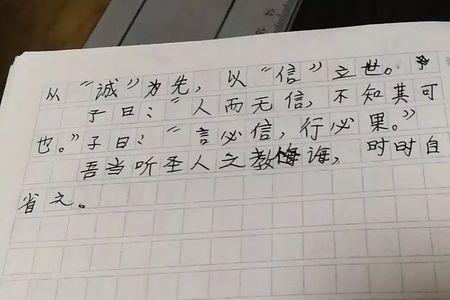 从“诚”为先，以“信”立世。
子曰：“人而无信，不知其可
也。”子曰：“言必信，行必果。”
吾当听圣人之教诲，时时自
省之。